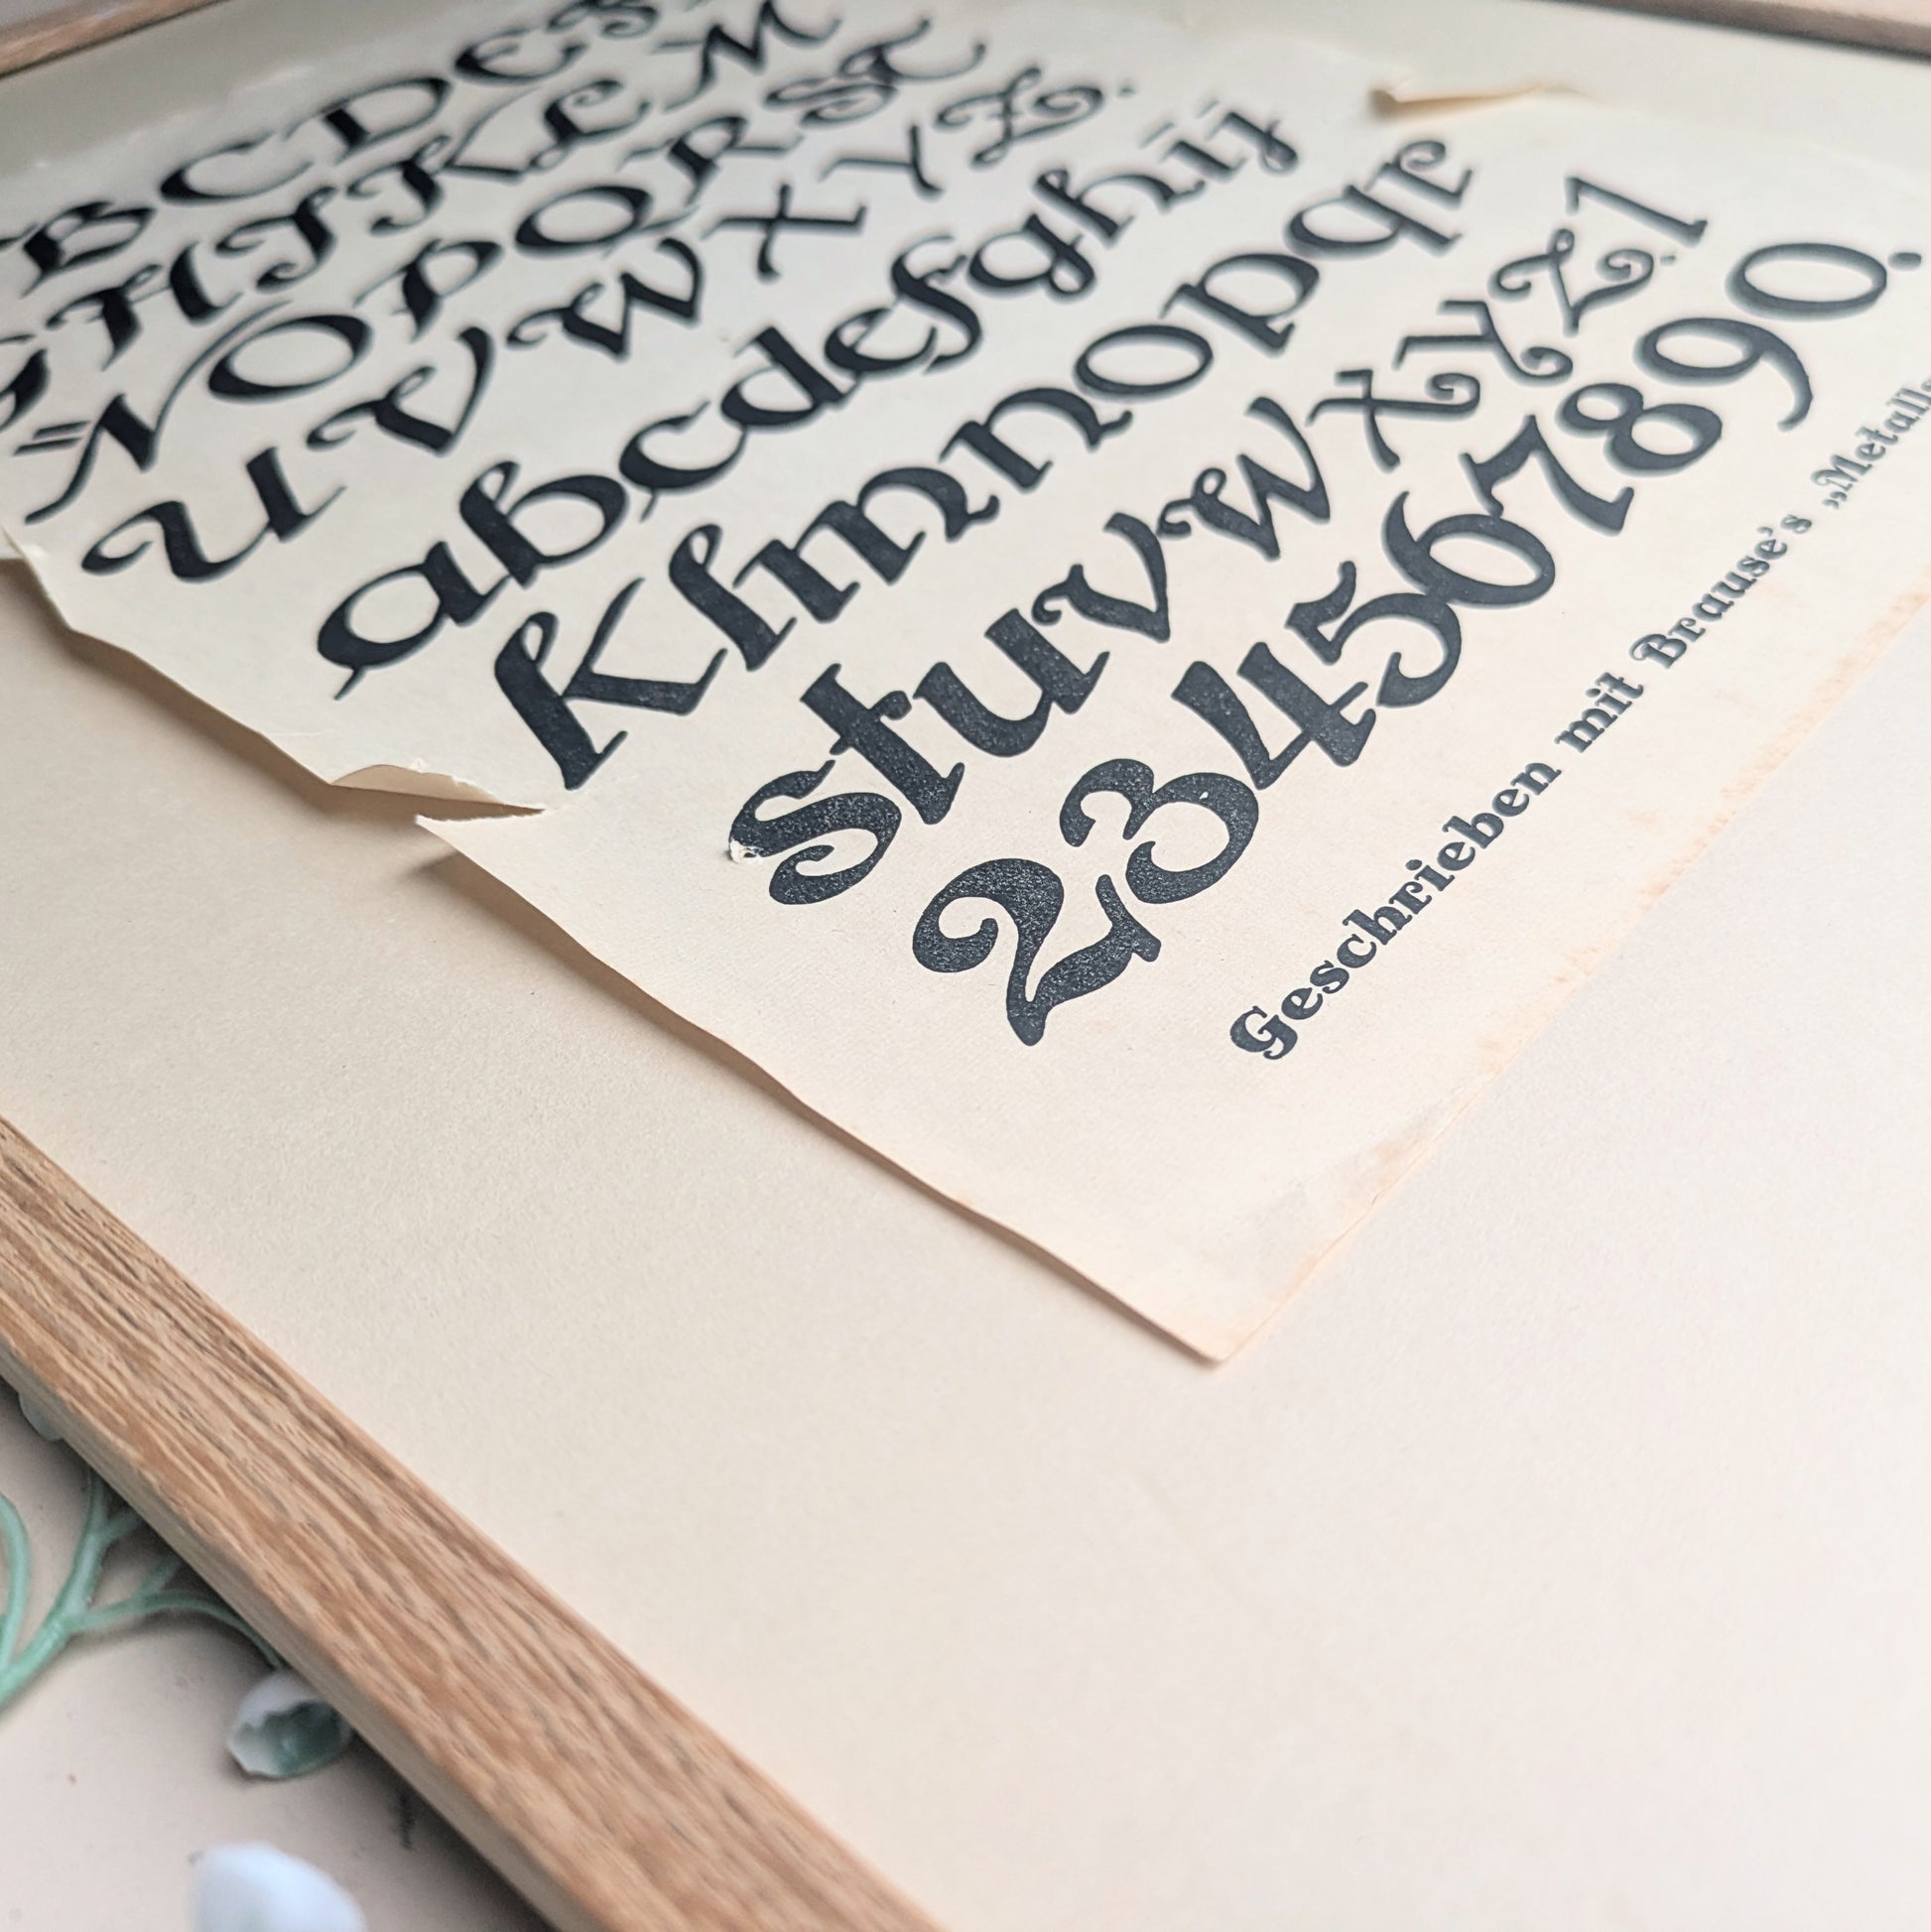 B C D E
H I J K L M
N O P Q R S T
U V W X Y Z.
a b c d e f g h i j
k l m n o p q r
s t u v w x y z. 1
2 3 4 5 6 7 8 9 0.
Geschrieben mit Brause's